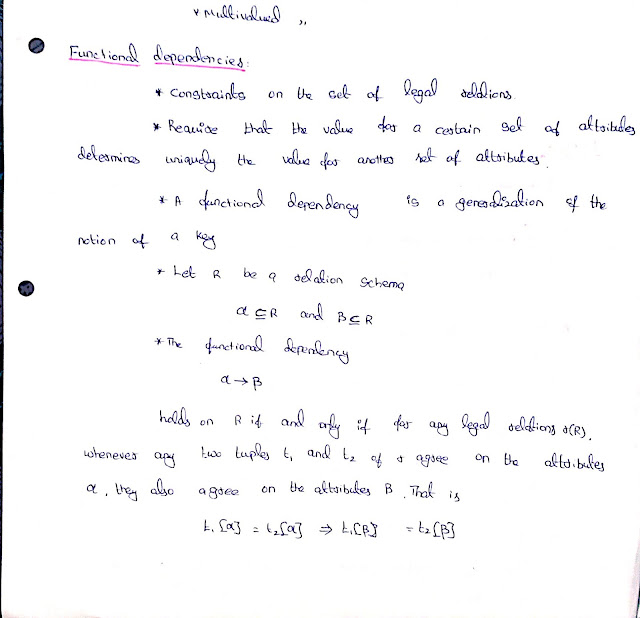 * Multivalued ,,
Functional dependencies:
* Constraints on the set of legal relations
* Require that the value for a certain set of attributes
determines uniquely the value for another set of attributes.
* A functional dependency is a generalisation of the
notion of a key
* Let R be a relation schema
α ⊆ R and β ⊆ R
* The functional dependency
α → β
holds on R if and only if for any legal relations r(R),
whenever any two tuples t₁ and t₂ of r agree on the attributes
α, they also agree on the attributes β. That is
t₁[α] = t₂[α] ⇒ t₁[β] = t₂[β]